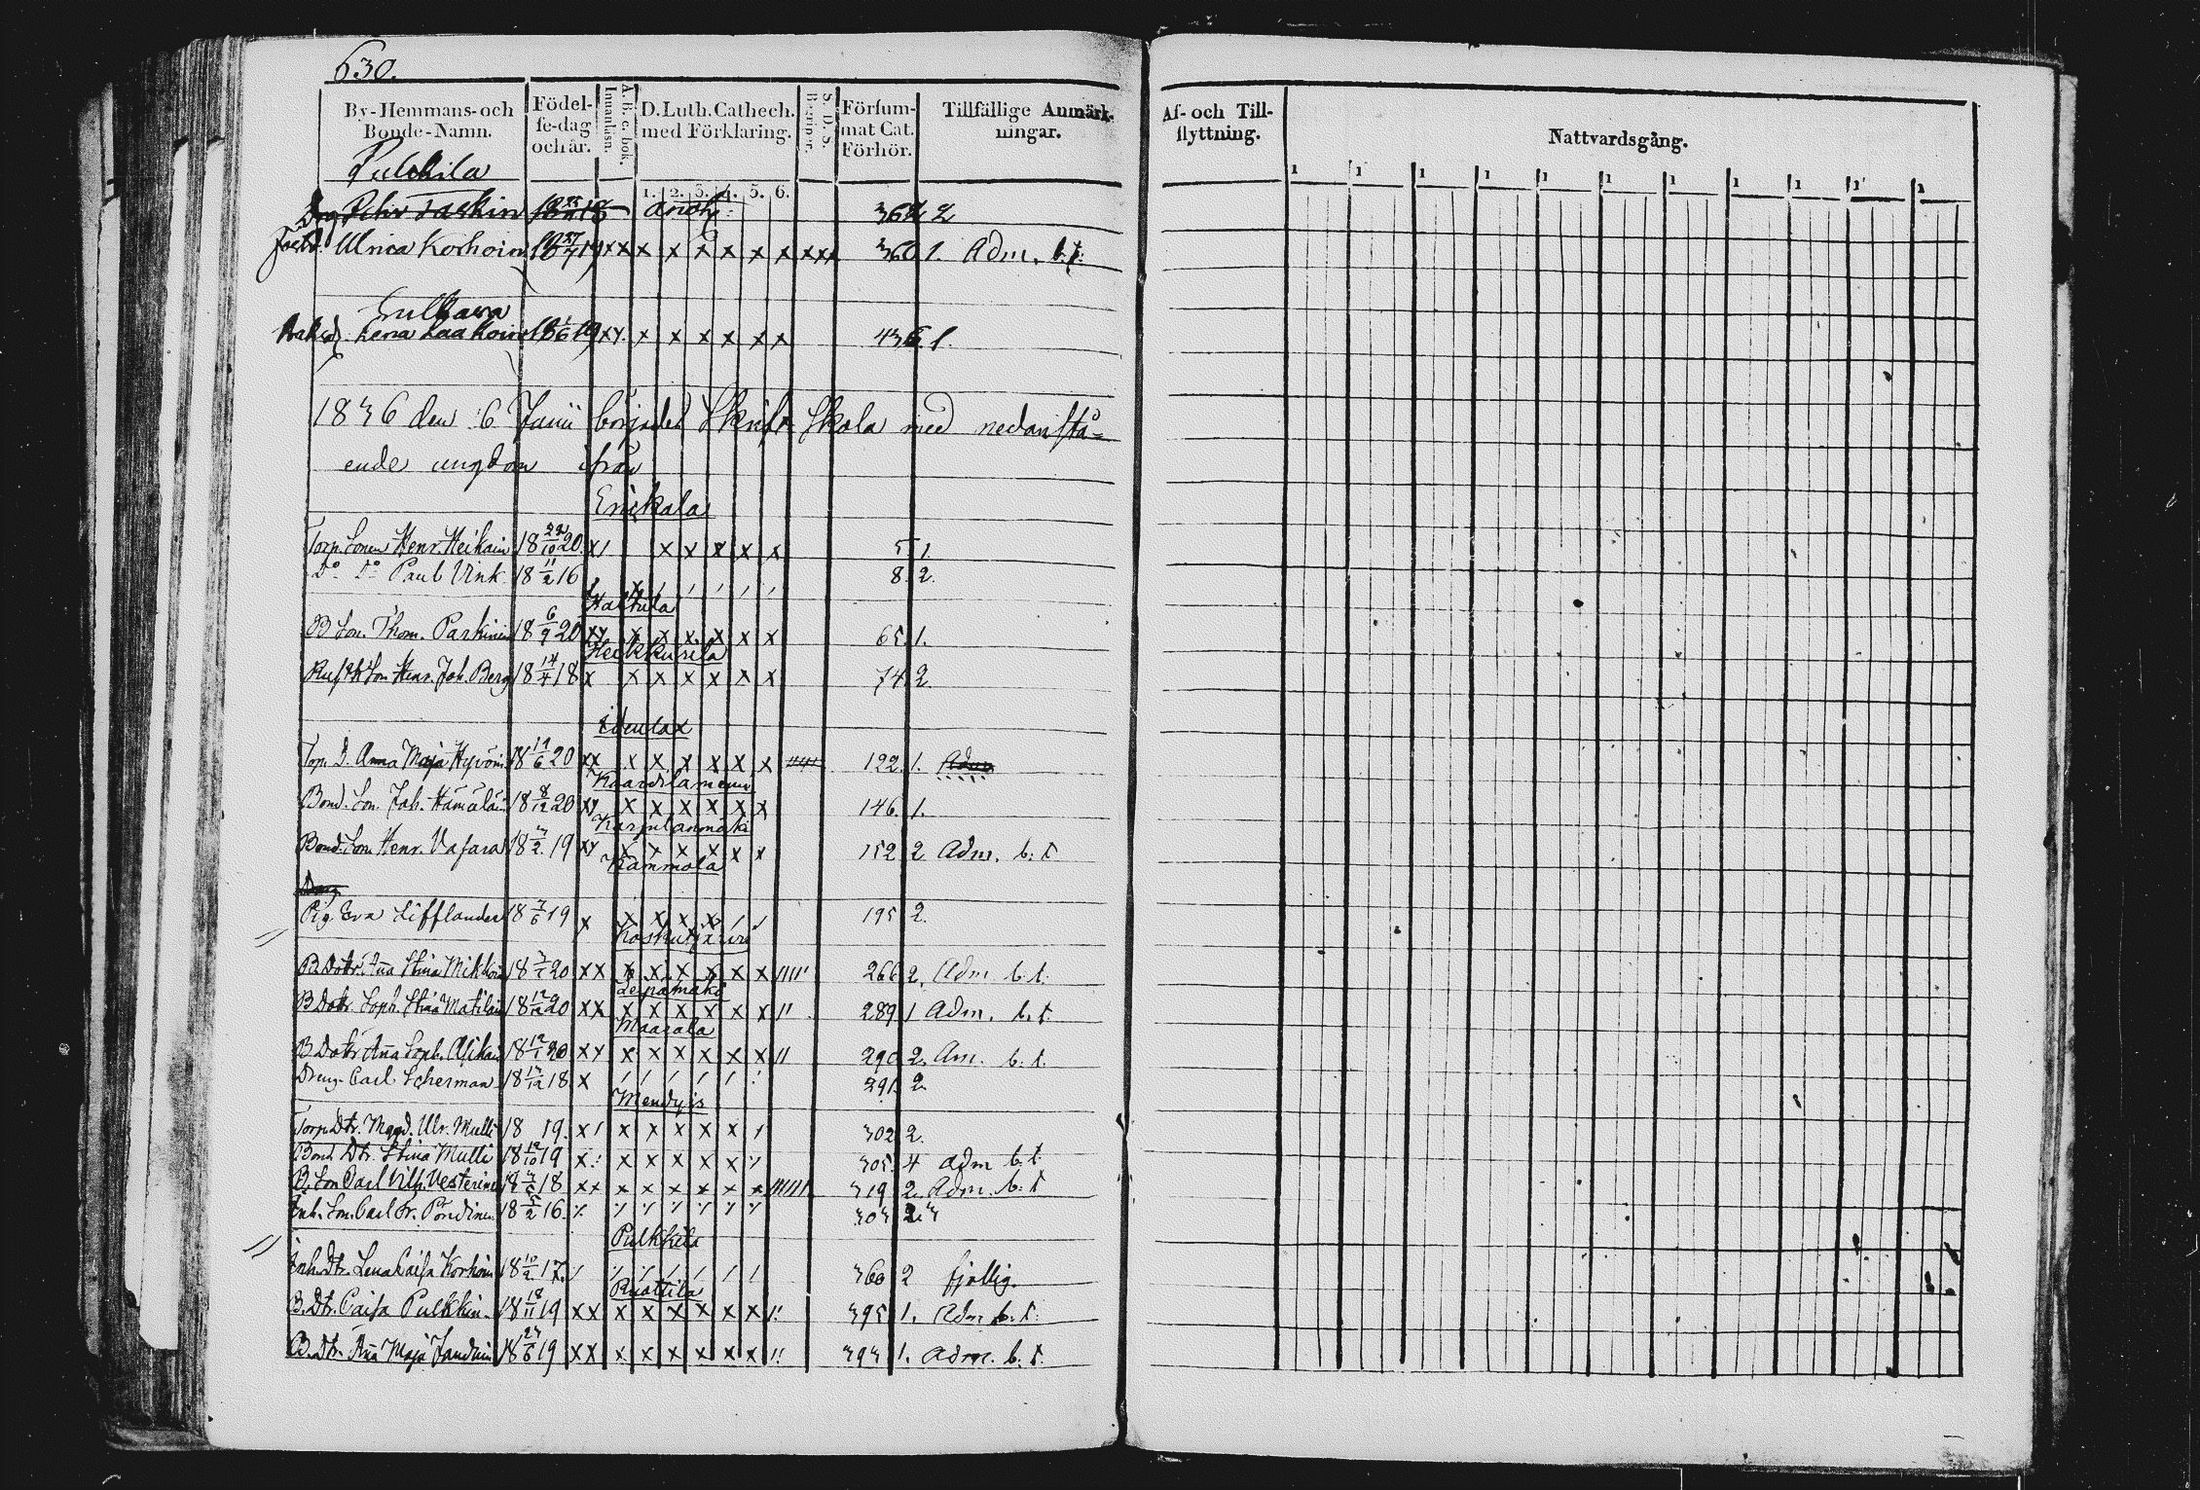 630.
By-Hemmans-och Bonde-Namn.
Födel-se-dag och år.
Innanläsn.
A. B. C. bok.
D. Luth. Cathech. med Förklaring.
1. 2. 3. 4. 5. 6.
S. D. S.
Begrepp.
Försum-mat Cat. Förhör.
Tillfällige Anmärk-ningar.
Af- och Till-flyttning.
Nattvardsgång.
1 1 1 1 1 1 1 1 1 1 1
Pulkkila
Petter Taskin 18 25/11 18 362 2
Ulrica Korhoin 18 27/7 19 x x x x x x x x x x x 360 1. Adm. b. t.
Sulkava
Lena Laakoin 18 1/6 19 x x x x x x x x 436. 1.
1836 den 6 Junii börjades Skrift Skola med nedanstå-
ende ungdom ifrån
Erickala
Torp. Sonen Henr. Heikain 18 29/10 20 x / x x x x x 5 1.
Do Do Paul Vink 18 11/2 16 8. 2.
Haltula
B Son. Thom. Parkinen 18 6/9 20 x x x x x x x x 65 1.
Heikkurila
Rusth Son Henr. Joh. Berg 18 14/4 18 x x x x x x x 74 2.
Idenlax
Torp. D. Anna Maja Hyvöin 18 19/6 20 x x x x x x x x 122. 1. Adm
Kaardilanemi
Bond. Son. Joh. Hämäläin 18 8/12 20 x x x x x x x x 146. 1.
Karjulanmäki
Bond. Son. Henr. Vasara 18 3/2 19 x x x x x x x x 152 2 Adm. b. t
Kammola
Pig. Eva Lifflander 18 7/6 19 x x x x x / / 195 2.
Koskutjärvi
B. Dottr. Aña Stina Mikkoin 18 20 x x x x x x x x //// 266 2. Adm b. t.
Lepämäki
B Dottr. Soph. Stina Matilain 18 12/12 20 x x x x x x x x // 289 1 Adm. b. t.
Maarala
B Dottr Aña Soph. Asikai 18 12/1 20 x x x x x x x x // 290 2. Am. b. t.
Dreng. Carl Scherman 18 13/12 18 x / / / / / / 291. 2
Mendyis
Torp. Dtr. Magd. Ulr. Mulli 18 19. x / x x x x x / 302 2.
Bond Dtr. Stina Mulli 18 12/10 19 x x x x x x 305. 4 adm b. t.
B. Son Carl Vilh. Vesterinen 18 18 x x x x x x x x ///// 319 2. Adm. b. t
Inh. Son. Carl Fr. Pöndinen 18 5/2 16. 303
Pulkkila
Inh. Dtr. Lena Caisa Korhoin 18 10/2 17. / / / / / / / 360 2 fjollig.
Ruottila
B. Dtr. Caisa Pulkkin. 18 18/11 19 x x x x x x x x 395 1. Adm b. t.
B. Dtr. Aña Maja Jandin 18 23/6 19 x x x x x x x x 393 1. Adm. b. t.